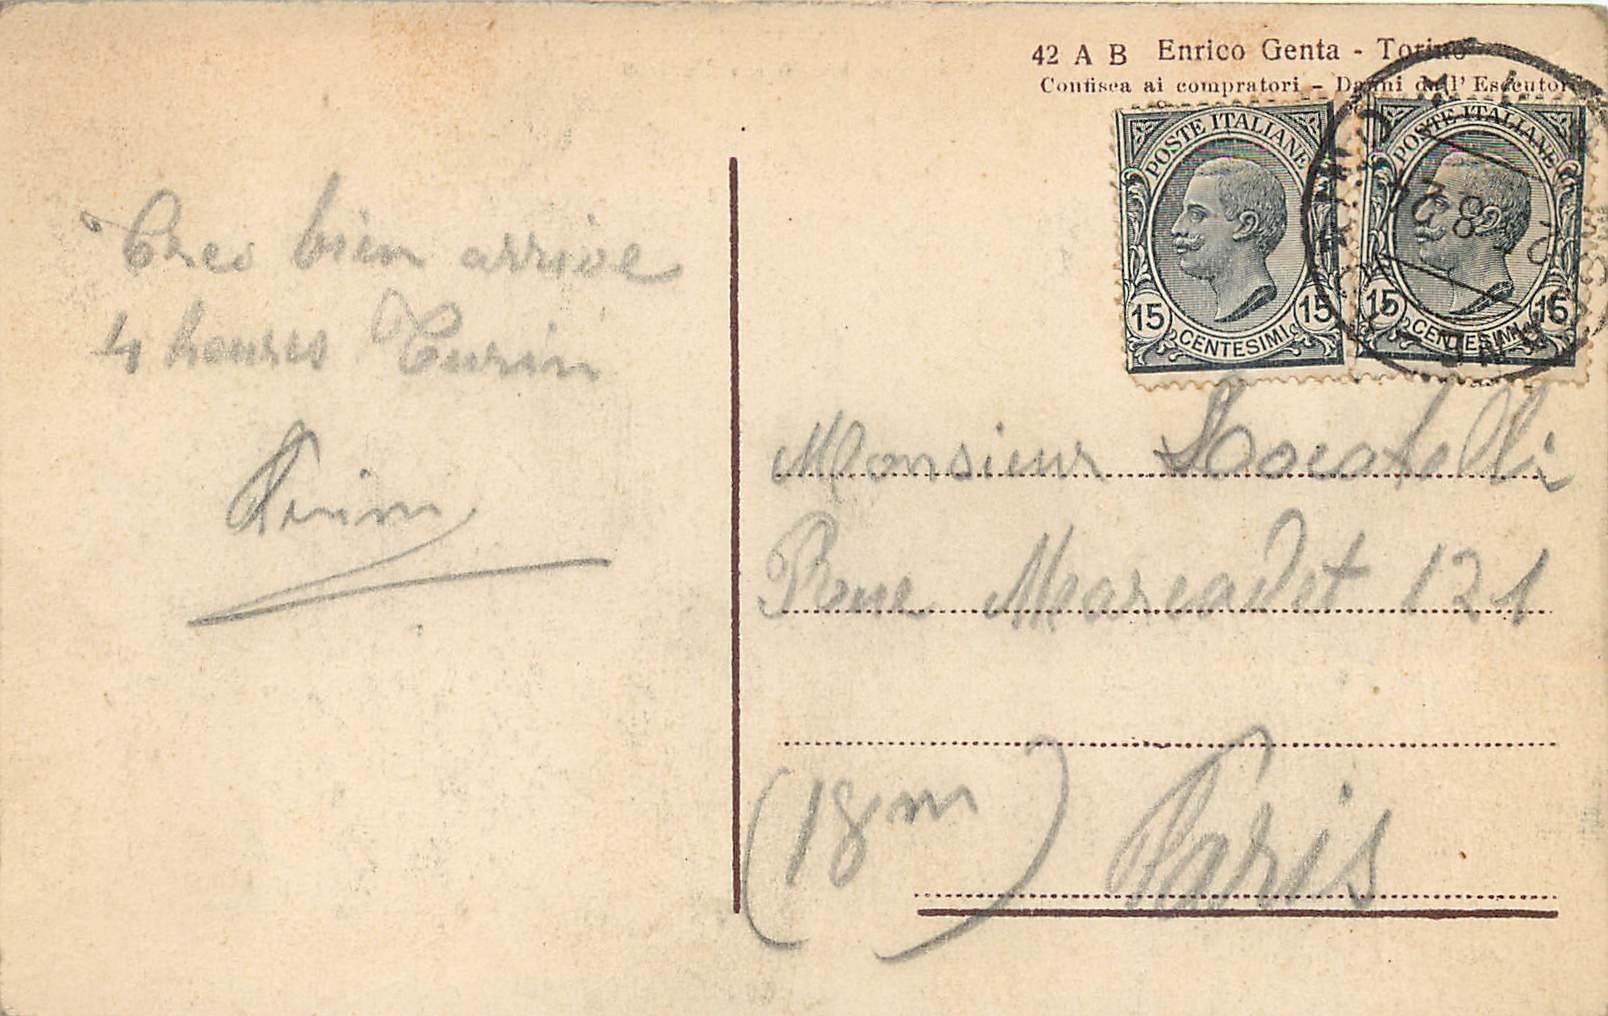 42 A B Enrico Genta - Torino
Confisca ai compratori - Danni dall'Esecutore
POSTE ITALIANE
15 CENTESIMI 15
POSTE ITALIANE
15 CENTESIMI 15
bien arrive
4 heures Turin
Monsieur Locatelli
Rue Marcadet 121
(18m)
Paris